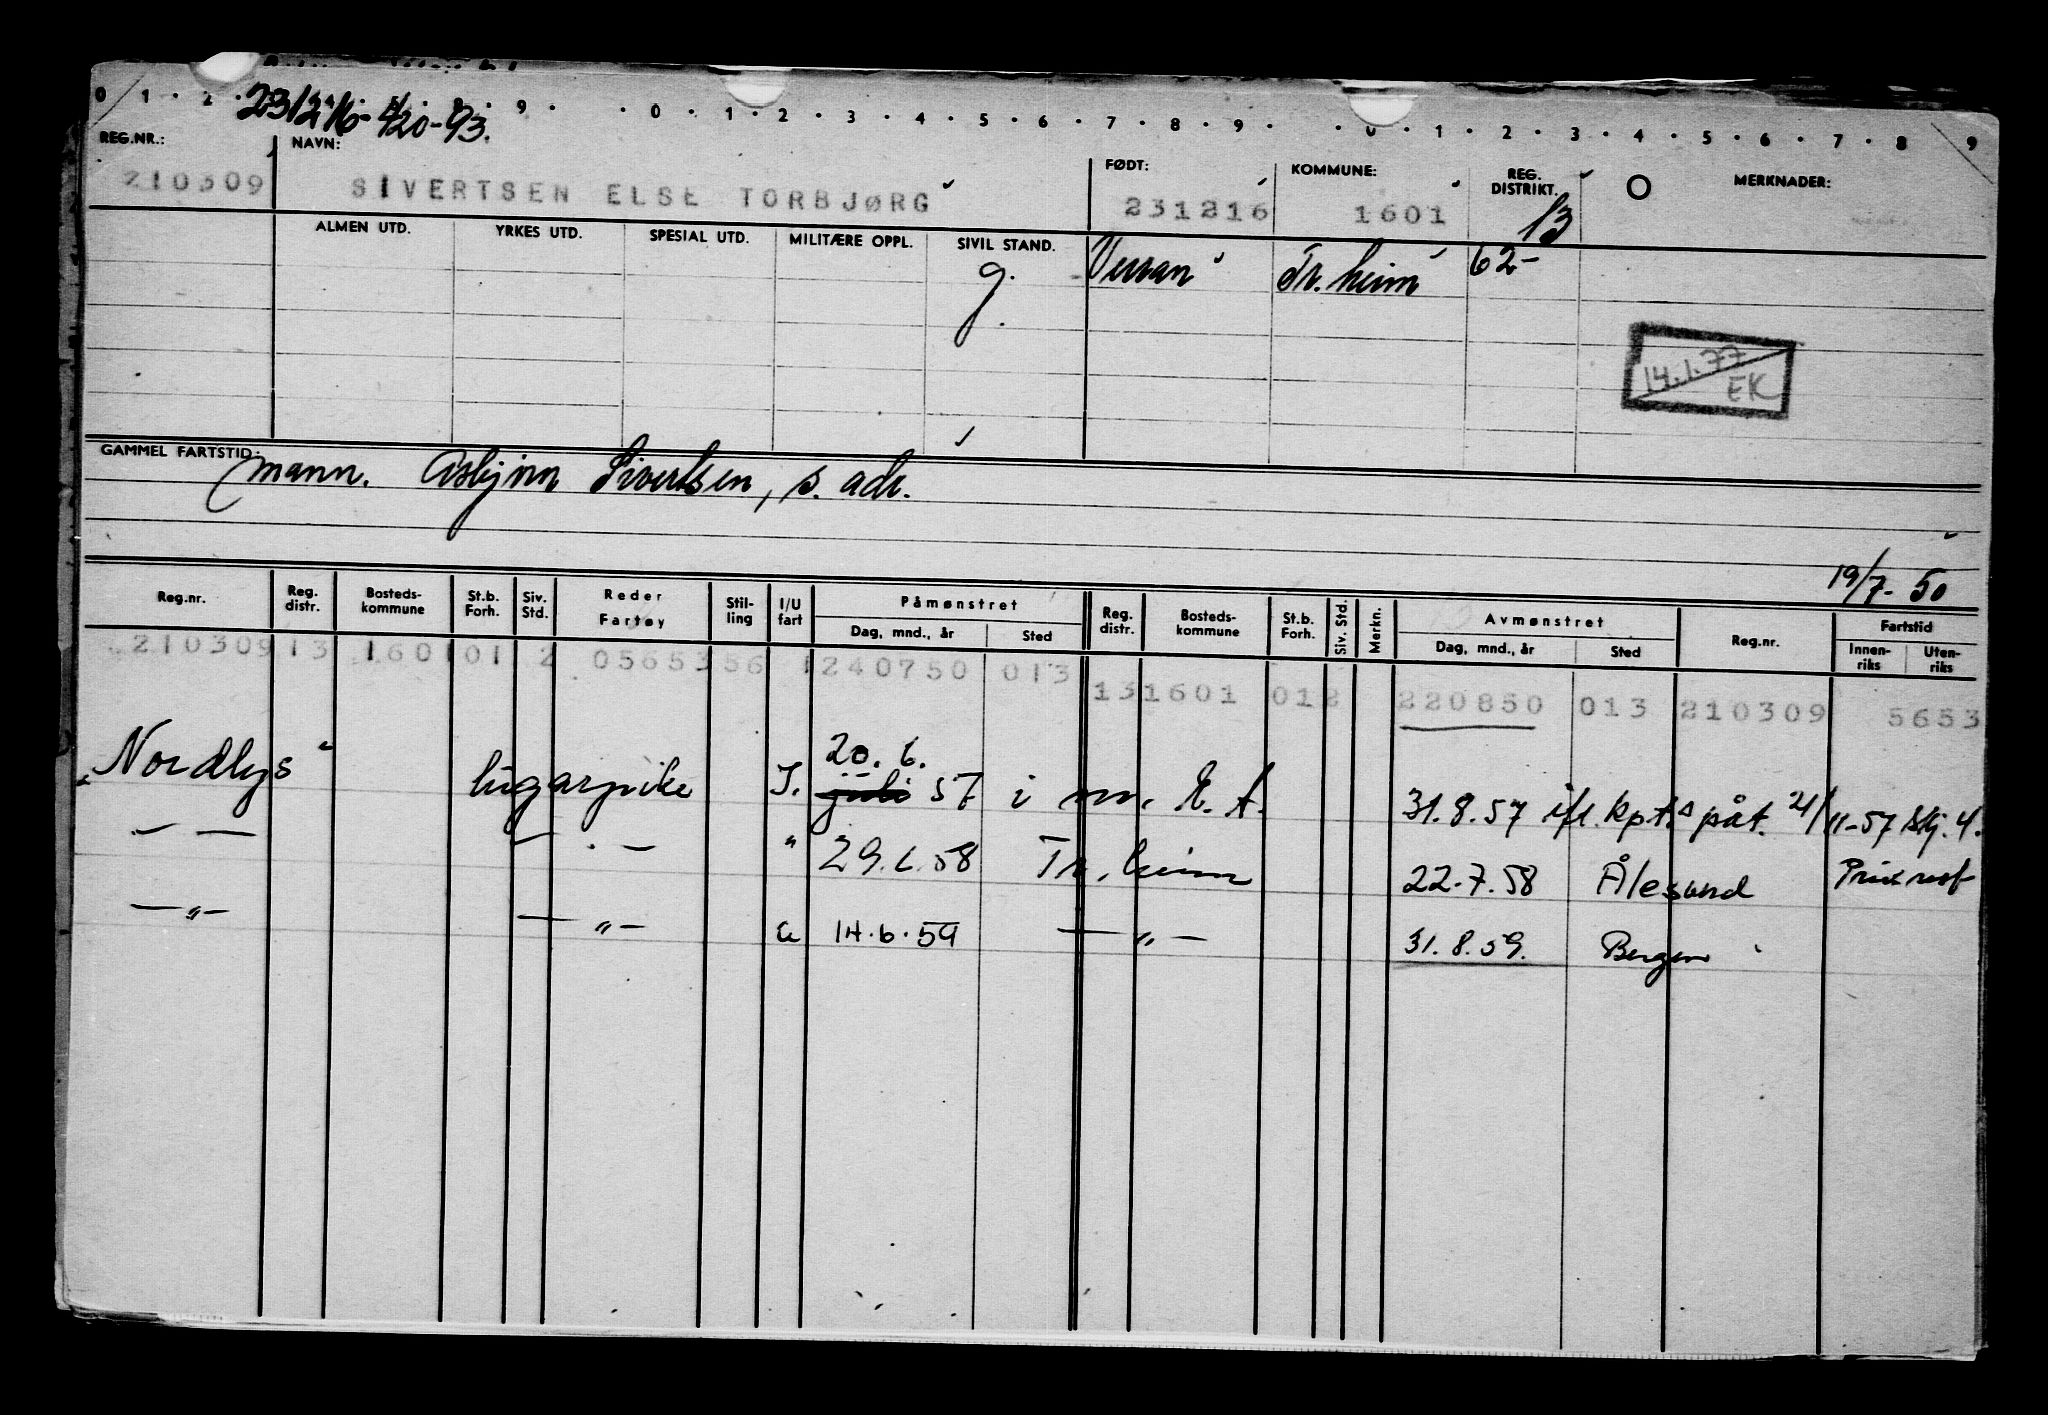 0 1 · 2 · 9 · · 0 · 1 · 2 · 3 · 4 · 5 · 6 · 7 · 8 · 9 · · 0 · 1 · 2 · 3 · 4 · 5 · 6 · 7 · 8 9
231216-420-93.
REG.NR.: NAVN: FØDT: KOMMUNE: REG. DISTRIKT. MERKNADER:
210309 SIVERTSEN ELSE TORBJØRG 231216 1601 13
ALMEN UTD. YRKES UTD. SPESIAL UTD. MILITÆRE OPPL. SIVIL STAND.
g. Verran Tr.heim 62-
14.1.77
EK
GAMMEL FARTSTID:
mann. Asbjørn Sivertsen, s. adr.
19/7-50
Reg.nr. Reg. distr. Bosteds-kommune St.b. Forh. Siv. Std. Reder Fartøy Stil-ling I/U fart Påmønstret Reg. distr. Bosteds-kommune St.b. Forh. Siv. Std. Merkn. Avmønstret Reg.nr. Fartstid
Dag, mnd., år Sted Dag, mnd., år Sted Innen-riks Uten-riks
210309 13 1601 01 2 0565356 1 240750 013
13 1601 012 220850 013 210309 5653
20. 6.
"Nordlys" lugarpike I. juli 57 i m. R. A. 31.8.57 ifl. kpt.s påt. 21/11-57 skj. 4.
— — — · — " 29.6.58 Tr.heim 22-7.58 Ålesund
— „ — — „ — 14.6.59 — „ — 31.8.59. Bergen